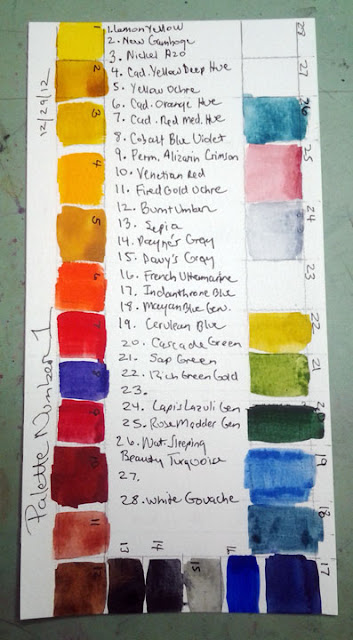 1. Lemon Yellow
2. New Gamboge
3. Nickel Azo
4. Cad. Yellow Deep Hue
5. Yellow Ochre
6. Cad. Orange Hue
7. Cad. Red Med. Hue
8. Cobalt Blue Violet
9. Perm. Alizarin Crimson
10. Venetian Red
11. Fired Gold Ochre
12. Burnt Umber
13. Sepia
14. Payne's Gray
15. Davy's Gray
16. French Ultramarine
17. Indanthrone Blue
18. Mayan Blue Gen.
19. Cerulean Blue
20. Cascade Green
21. Sap Green
22. Rich Green Gold
23.
24. Lapis Lazuli Gen
25. Rose Madder Gen
26. Nat. Sleeping
Beauty Turquoise
27.
28. White Gouache
12/29/12
Palette Number 1
2
3
4
5
6
7
8
9
10
11
12
13
14
15
16
17
18
19
20
21
22
23
24
25
26
27
28